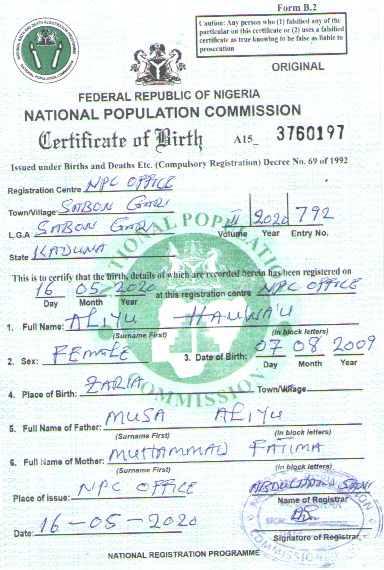 Form B.2
Caution: Any person who (1) falsified any of the particular on this certificate or (2) uses a falsified certificate as true knowing to be false as liable to prosecution
ORIGINAL
FEDERAL REPUBLIC OF NIGERIA
NATIONAL POPULATION COMMISSION
Certificate of Birth A15_ 3760197
Issued under Births and Deaths Etc. (Compulsory Registration) Decree No. 69 of 1992
Registration Centre NPC OFFICE
Town/Village SABON GARI
L.G.A SABON GARI II 2020 792
Volume Year Entry No.
State KADUNA
This is to certify that the birth, details of which are recorded herein has been registered on
16 05 2020 at this registration centre NPC OFFICE
Day Month Year
1. Full Name: ALIYU HAUWA'U
(Surname First) (In block letters)
2. Sex: FEMALE 3. Date of Birth: 07 08 2009
Day Month Year
4. Place of Birth: ZARIA Town/Village
5. Full Name of Father: MUSA ALIYU
(Surname First) (In block letters)
6. Full Name of Mother: MUHAMMAD FATIMA
(Surname First) (In block letters)
Place of issue: NPC OFFICE ABDULHAMID SANI
Name of Registrar
Date: 16-05-2020
Signature of Registrar
NATIONAL REGISTRATION PROGRAMME